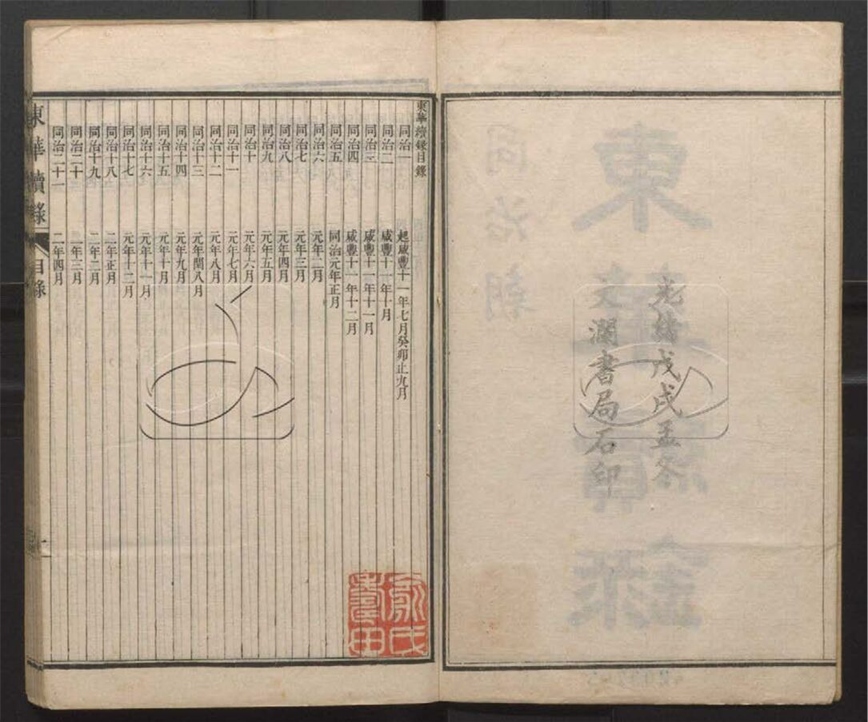 光緒戊戌孟冬
文瀾書局石印
東華續錄目錄
同治一 起咸豐十一年七月癸卯止九月
同治二 咸豐十一年十月
同治三 咸豐十一年十一月
同治四 咸豐十一年十二月
同治五 同治元年正月
同治六 元年二月
同治七 元年三月
同治八 元年四月
同治九 元年五月
同治十 元年六月
同治十一 元年七月
同治十二 元年八月
同治十三 元年閏八月
同治十四 元年九月
同治十五 元年十月
同治十六 元年十一月
同治十七 元年十二月
同治十八 二年正月
同治十九 二年二月
同治二十 二年三月
同治二十一 二年四月
東華續錄 目錄